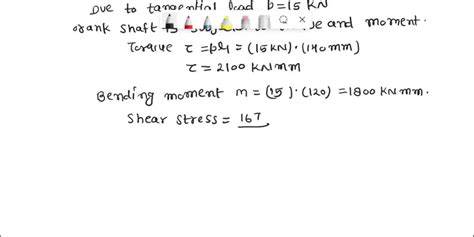 Due to tangential load P=15 KN
crank shaft is and moment.
Torque τ = p×r = (15KN)·(140mm)
τ = 2100 KNmm
Bending moment m = (15)·(120) = 1800 KNmm.
Shear stress = 16T